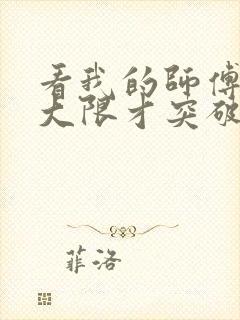 看我的師傅
大限才突破
菲洛